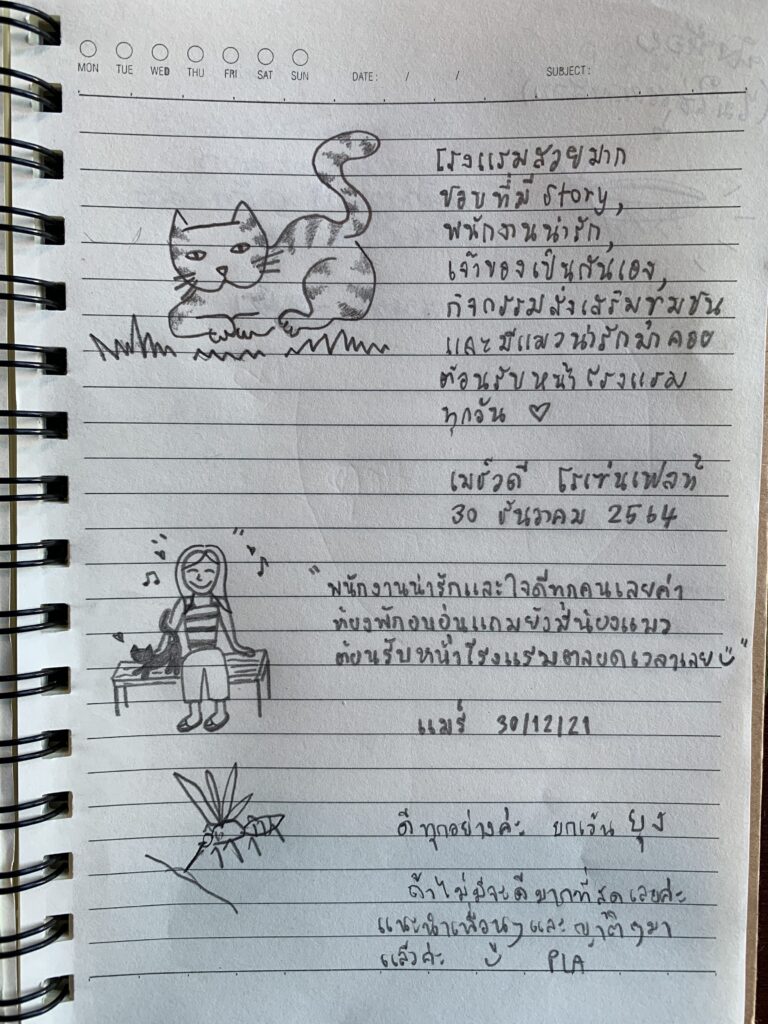 MON TUE WED THU FRI SAT SUN DATE: / / SUBJECT:
โรงแรมสวยมาก
ชอบที่มี story,
พนักงานน่ารัก,
เจ้าของเป็นกันเอง,
กิจกรรมส่งเสริมชุมชน
และมีแมวน่ารักมาคอย
ต้อนรับหน้าโรงแรม
ทุกวัน ♡
โรเซ่นเฟลท์
30 ธันวาคม 2564
"พนักงานน่ารักและใจดีทุกคนเลยค่า
ห้องพักอบอุ่นแถมยังมีน้องแมว
ต้อนรับหน้าโรงแรมตลอดเวลาเลย"
แมรี่ 30/12/21
ดีทุกอย่างค่ะ ยกเว้น ยุง
ถ้าไม่มีจะดีมากที่สุดเลยค่ะ
แนะนำเพื่อนๆและญาติๆมา
แล้วค่ะ PLA